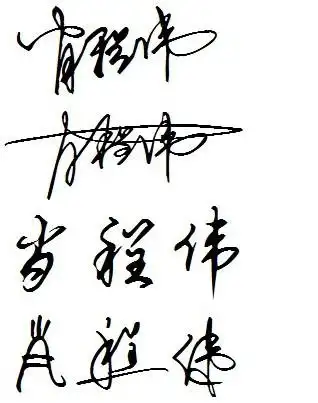 肖程伟
肖程伟
肖程伟
肖程伟